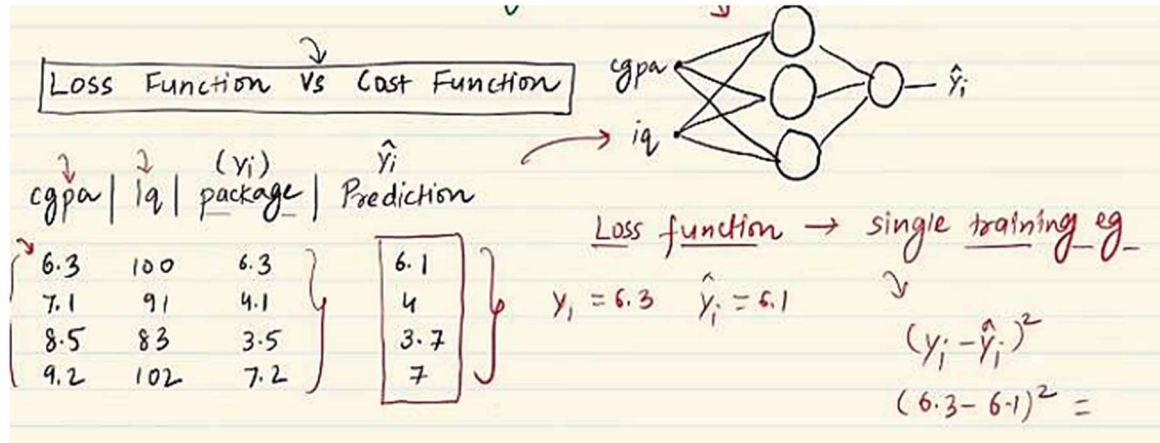 Loss Function Vs Cost Function
cgpa
iq
ŷi
(yi) ŷi
cgpa | iq | package | Prediction
6.3 100 6.3 6.1
7.1 91 4.1 4
8.5 83 3.5 3.7
9.2 102 7.2 7
Loss function → single training eg
y1 = 6.3 ŷi = 6.1
(yi - ŷi)2
(6.3 - 6.1)2 =